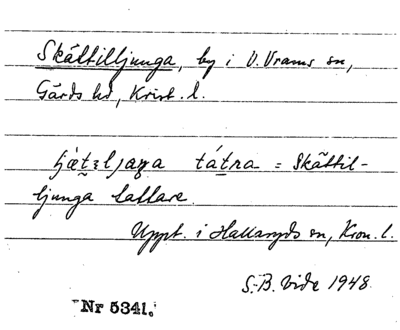 Skättilljunga, by i V. Vrams sn,
Gärds hd, Krist. l.
tátra = Skättil-
ljunga tattare.
Uppt. i Hallaryds sn, Kron. l.
S.-B. Vide 1948.
Nr 5341.